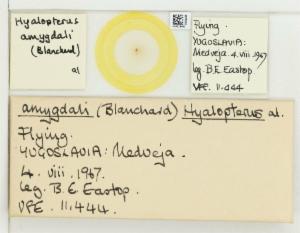 Hyalopterus
amygdali
(Blanchard)
al
Flying.
YUGOSLAVIA:
Medveja. 4.viii.1967
leg. B.E. Eastop.
VFE. 11.444
amygdali (Blanchard) Hyalopterus al.
Flying.
YUGOSLAVIA: Medveja.
4. viii. 1967.
leg. B. E. Eastop.
VFE. 11.444.